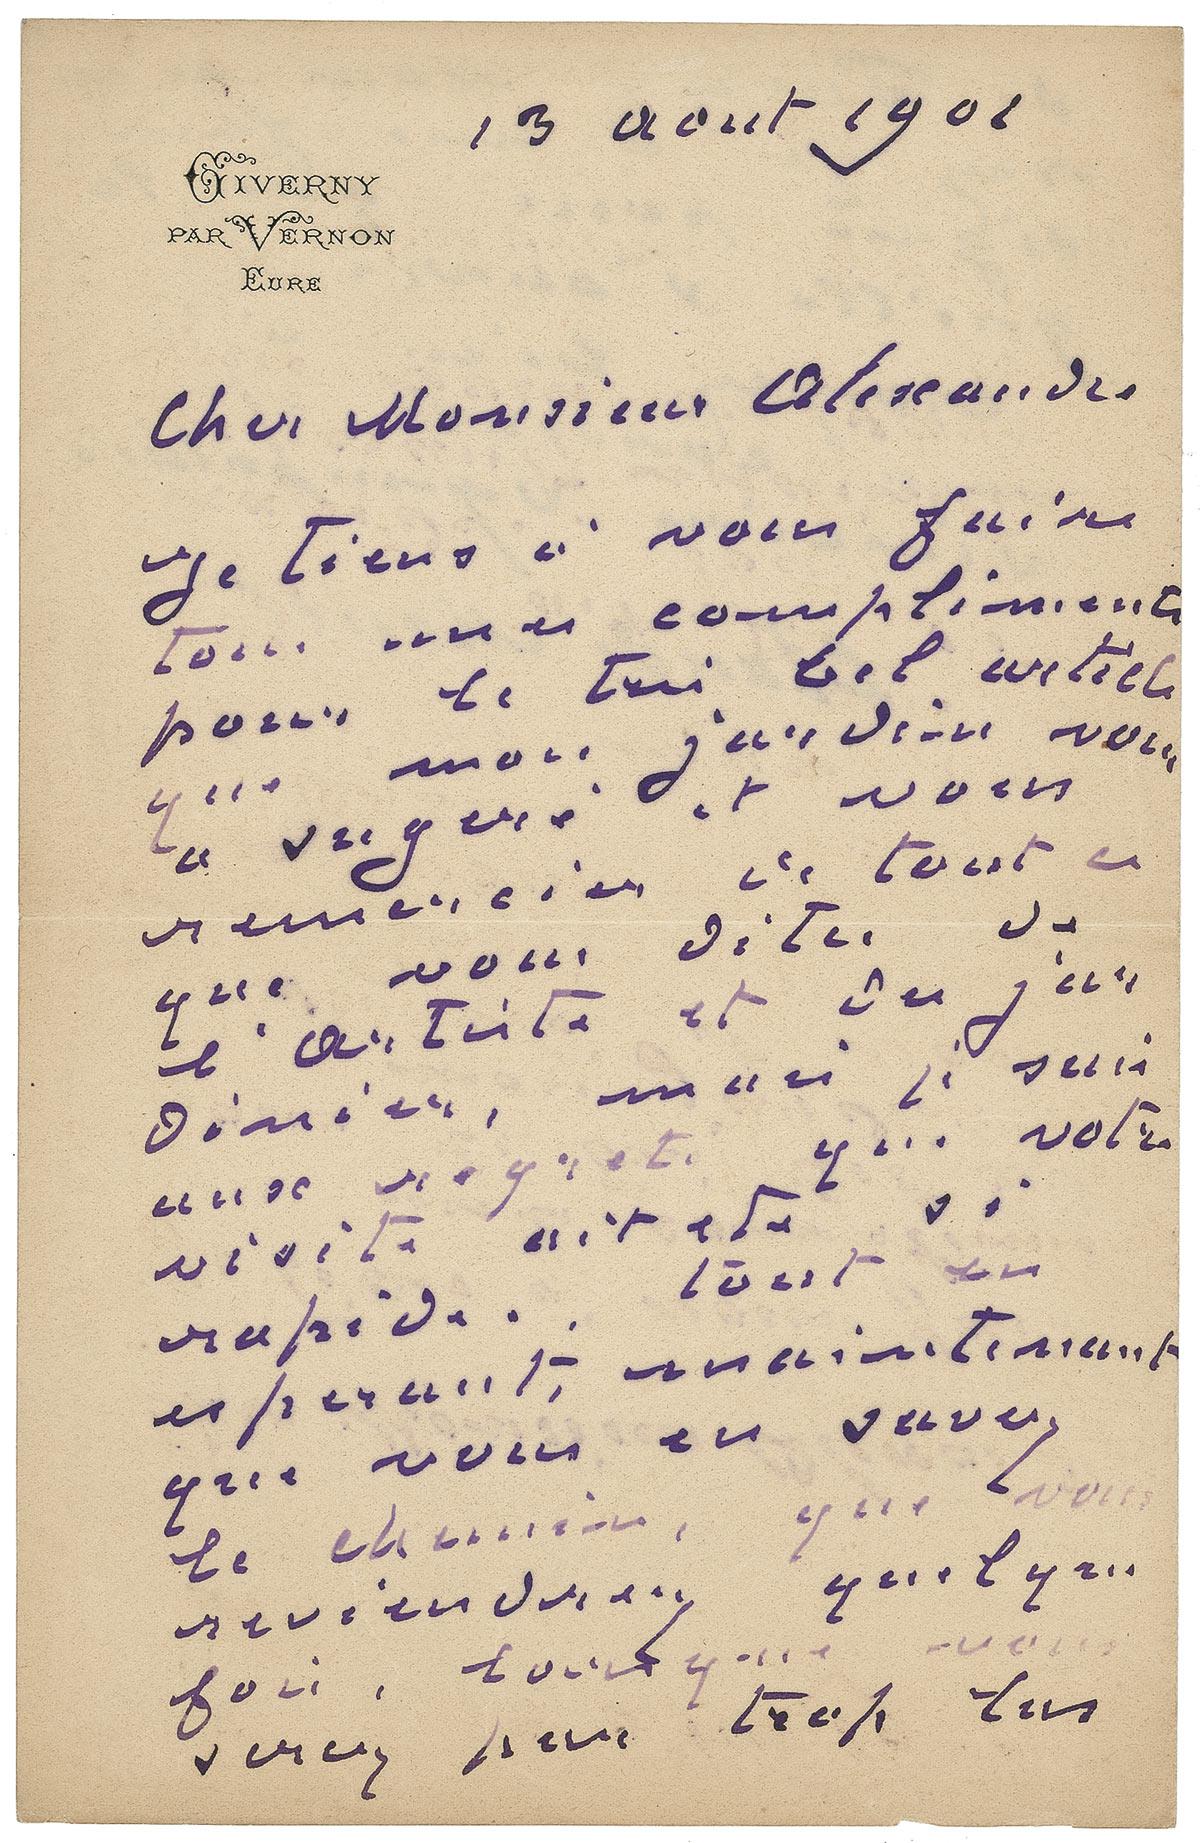 13 aout 1901
GIVERNY
PAR VERNON
EURE
Cher Monsieur Alexandre
Je tiens à vous faire
tous mes compliments
pour le très bel article
que mon jardin vous
a suggéré et vous
remercier de tout ce
que vous dites de
l'Artiste et du jar
dinier, mais je suis
aux regrets que votre
visite ait été si
rapide. tout en
esperant, maintenant
que vous en savez
le chemin, que vous
reviendrez quelque
fois, lorsque vous
serez par trop las